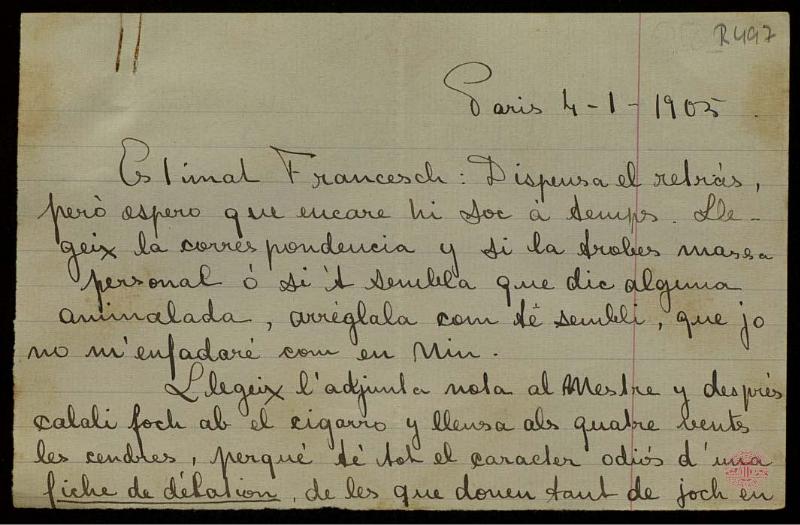 R497
Paris 4-1-1905.
Estimat Francesch: Dispensa el retrás,
però espero que encare hi soc à temps. Lle-
geix la correspondencia y si la trobes massa
personal ó si 't sembla que dic alguna
animalada, arréglala com té sembli, que jo
no m'enfadaré com en Nin.
Llegeix l'adjunta nota al Mestre y després
calali foch ab el cigarro y llensa als quatre vents
les cendres, perqué té tot el caracter odiós d'una
fiche de délation, de les que donen tant de joch en